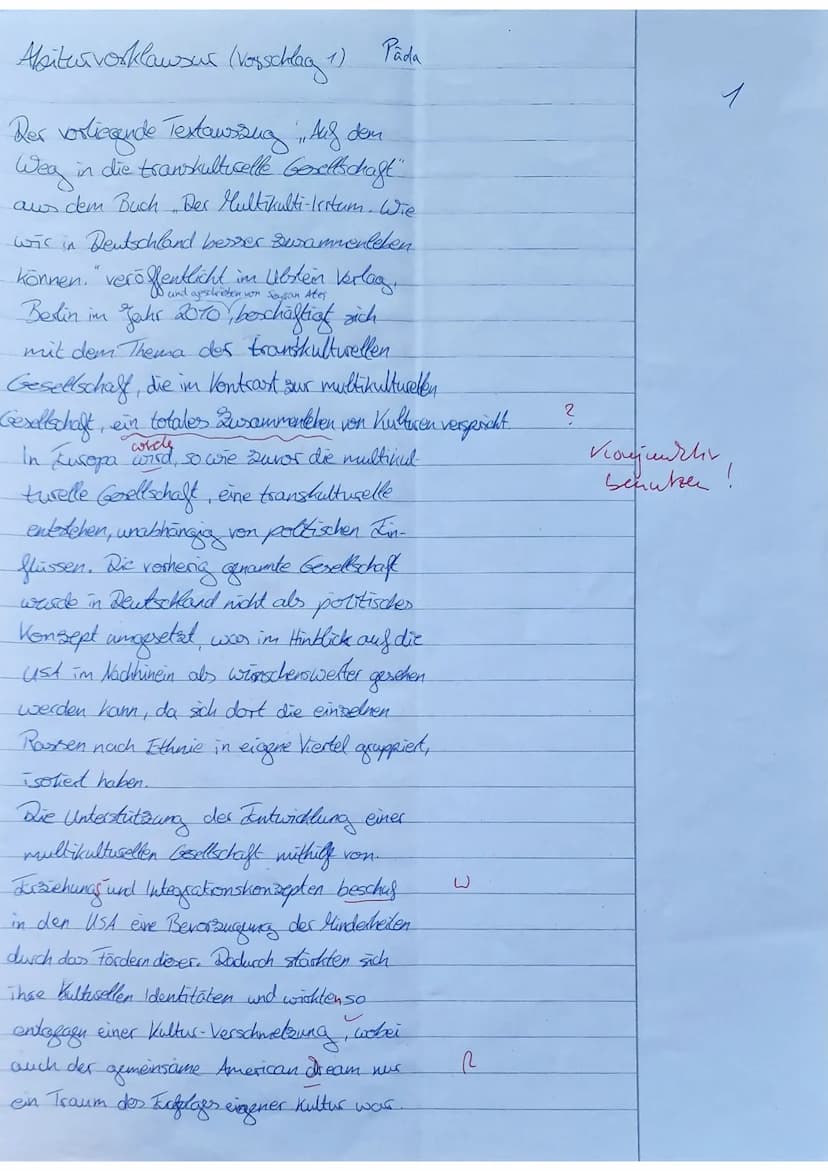 Abiturvorklausur (Vorschlag 1) Päda
1
Der vorliegende Textauszug „Auf dem
Weg in die transkulturelle Gesellschaft"
aus dem Buch „Der Multikulti-Irrtum. Wie
wir in Deutschland besser zusammenleben
können." veröffentlicht im Ullstein Verlag,
und geschrieben von Seyran Ateş
Berlin im Jahr 2010, beschäftigt sich
mit dem Thema der transkulturellen
Gesellschaft, die im Kontrast zur multikulturellen
Gesellschaft, ein totales Zusammenleben von Kulturen verspricht. ?
werde
In Europa wird, so wie zuvor die multikul- Konjunktiv
turelle Gesellschaft, eine transkulturelle benutzen!
entstehen, unabhängig von politischen Ein-
flüssen. Die vorherig genannte Gesellschaft
wurde in Deutschland nicht als politisches
Konzept umgesetzt, was im Hinblick auf die
USA im Nachhinein als wünschenswerter gesehen
werden kann, da sich dort die einzelnen
Rassen nach Ethnie in eigene Viertel gruppiert,
isoliert haben.
Die Unterstützung der Entwicklung einer
multikulturellen Gesellschaft mithilfe von
Erziehungs und Integrationskonzepten beschuf W
in den USA eine Bevorzugung der Minderheiten
durch das Fördern dieser. Dadurch stärkten sich
ihre kulturellen Identitäten und wirkten so
entgegen einer Kultur-Verschmelzung, wobei
auch der gemeinsame American dream nur R
ein Traum des Erfolges eigener Kultur war.